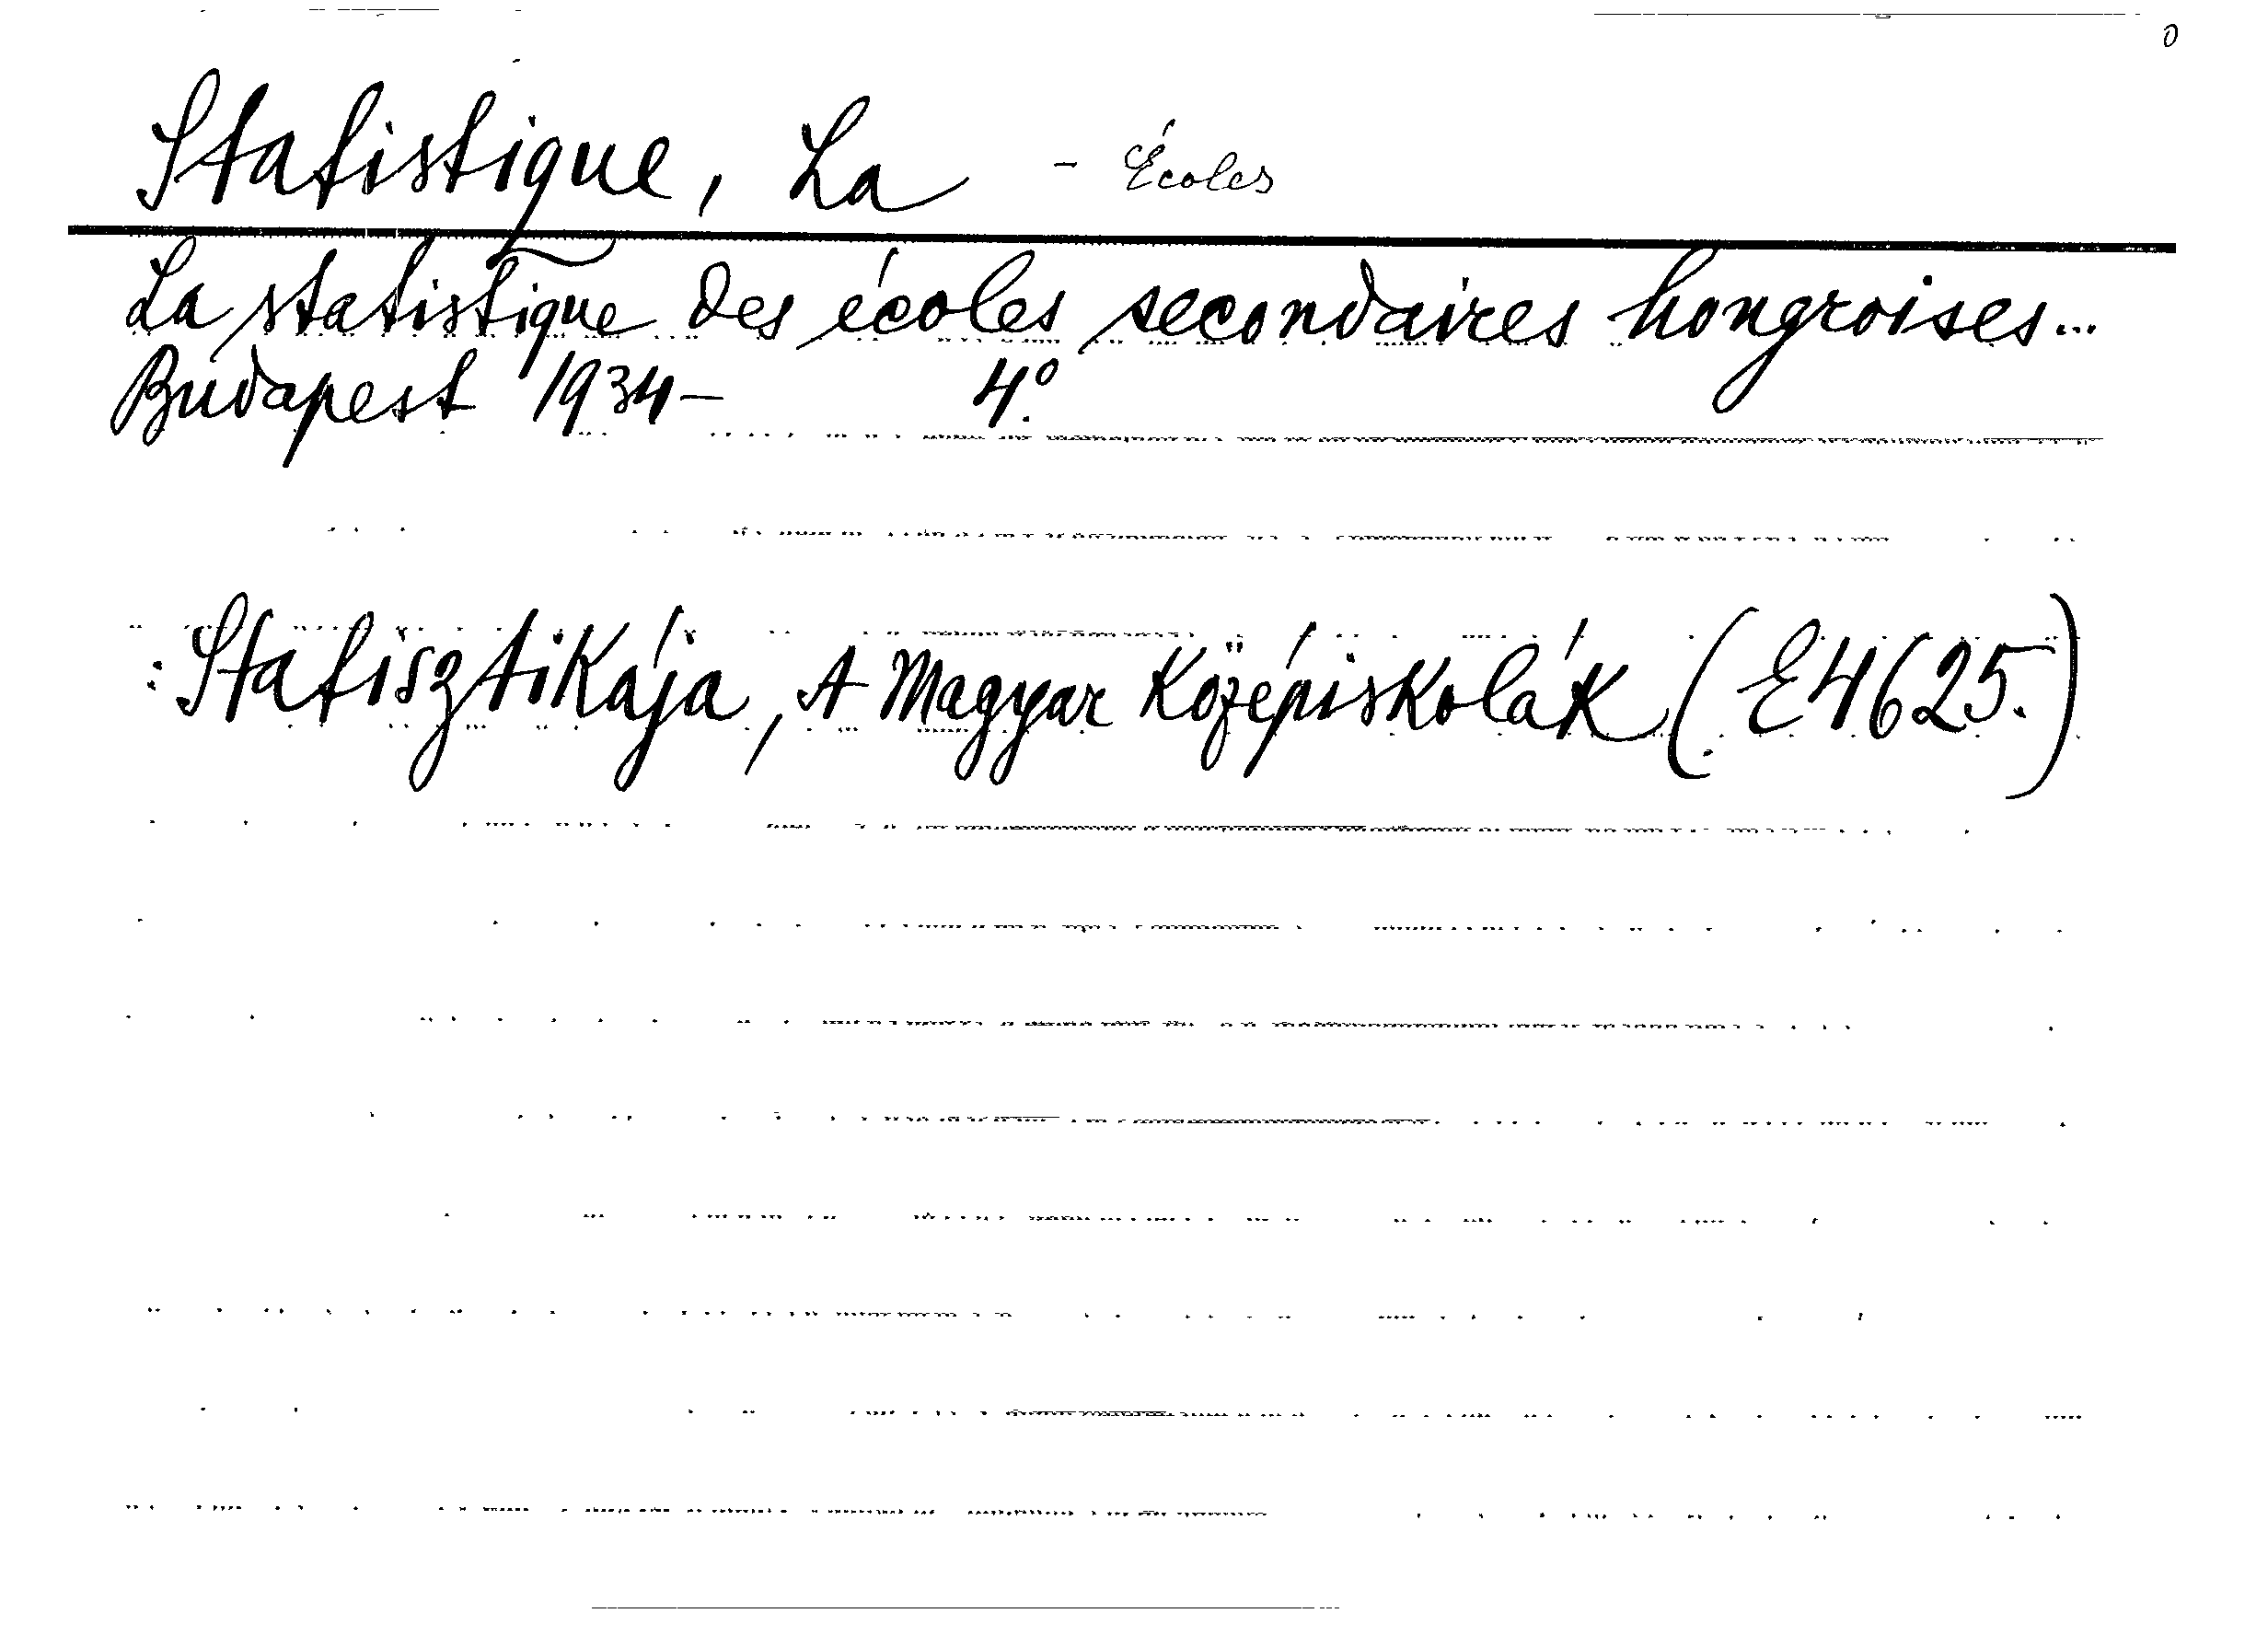 Statistique, La - Écoles
La statistique des écoles secondaires hongroises...
Budapest 1934- 4.°
: Statisztikája, A Magyar Középiskolák (E4625.)